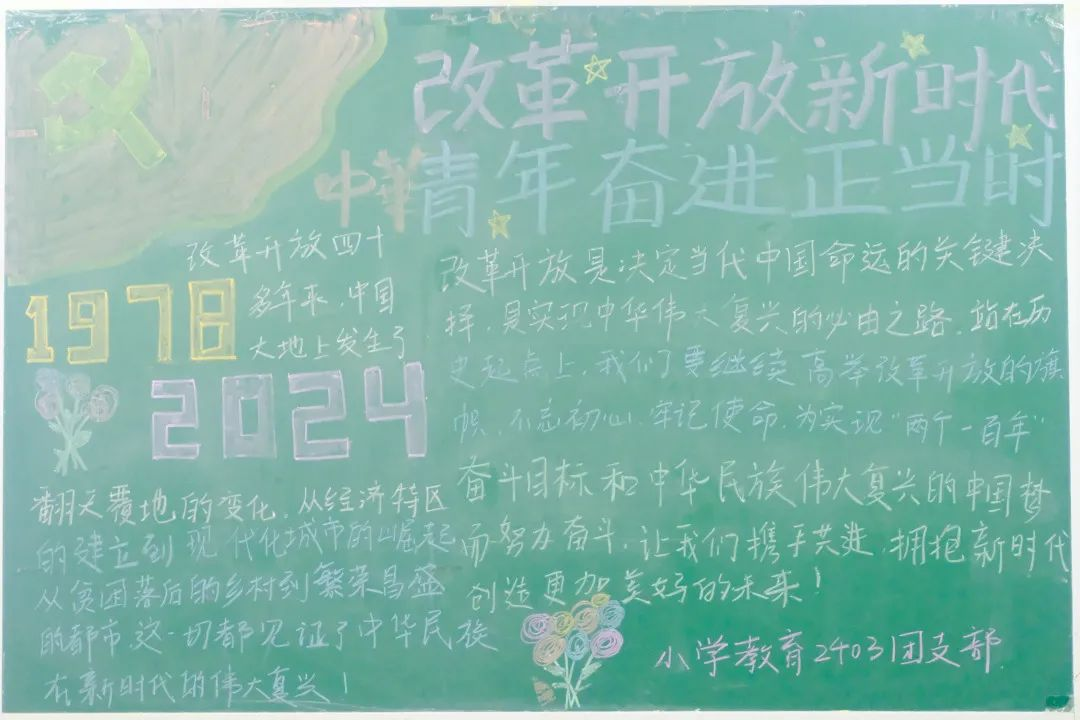 改革开放新时代
中华青年奋进正当时
改革开放四十
多年来，中国
大地上发生了
1978
2024
翻天覆地的变化，从经济特区
的建立到现代化城市的崛起
从贫困落后的乡村到繁荣昌盛
的都市，这一切都见证了中华民族
在新时代的伟大复兴！
改革开放是决定当代中国命运的关键决
择，是实现中华伟大复兴的必由之路，站在历
史起点上，我们了要继续高举改革开放的旗
帜，不忘初心，牢记使命，为实现“两个一百年”
奋斗目标和中华民族伟大复兴的中国梦
而努力奋斗，让我们携手共进，拥抱新时代
创造更加美好的未来！
小学教育2403团支部